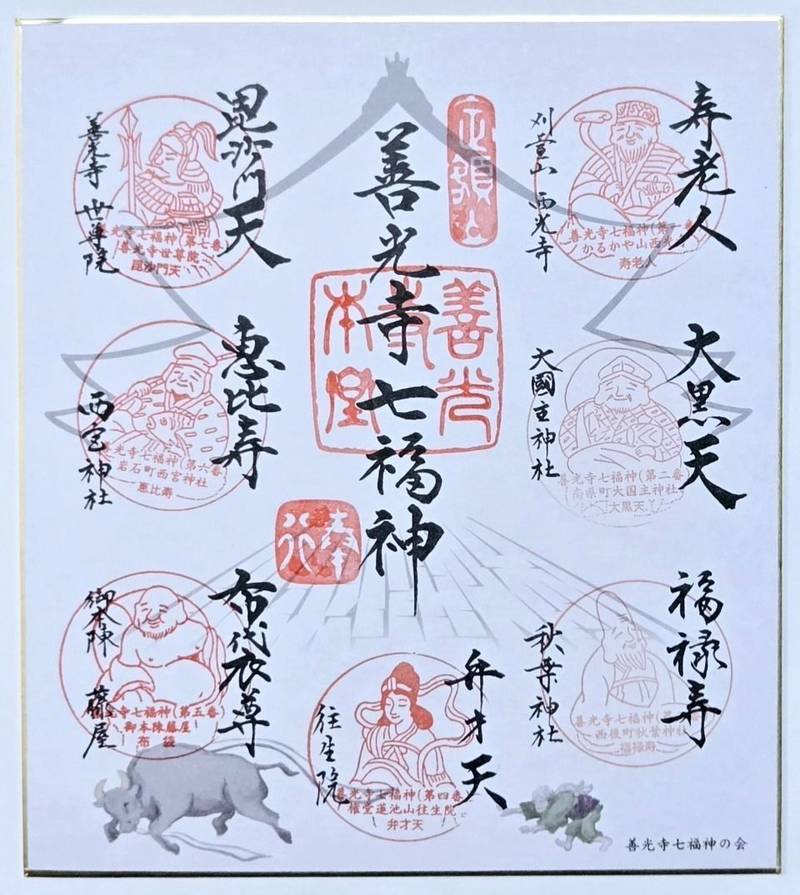 善光寺七福神
寿老人
刈萱山 西光寺
善光寺七福神(第一番
かるかや山西光寺
寿老人
大黒天
大國主神社
善光寺七福神(第二番
南県町大国主神社
大黒天
福禄寿
秋葉神社
善光寺七福神(第
西後町秋葉神社
福禄寿
弁才天
往生院
善光寺七福神(第四番
権堂蓮池山往生院
弁才天
布袋尊
御本陣 藤屋
光寺七福神(第五番
御本陣藤屋
布袋
恵比寿
西宮神社
善光寺七福神(第六番
岩石町西宮神社
恵比寿
毘沙門天
善光寺 世尊院
光寺七福神(第七番
善光寺世尊院
毘沙門天
善光
本堂
奉
善光寺七福神の会